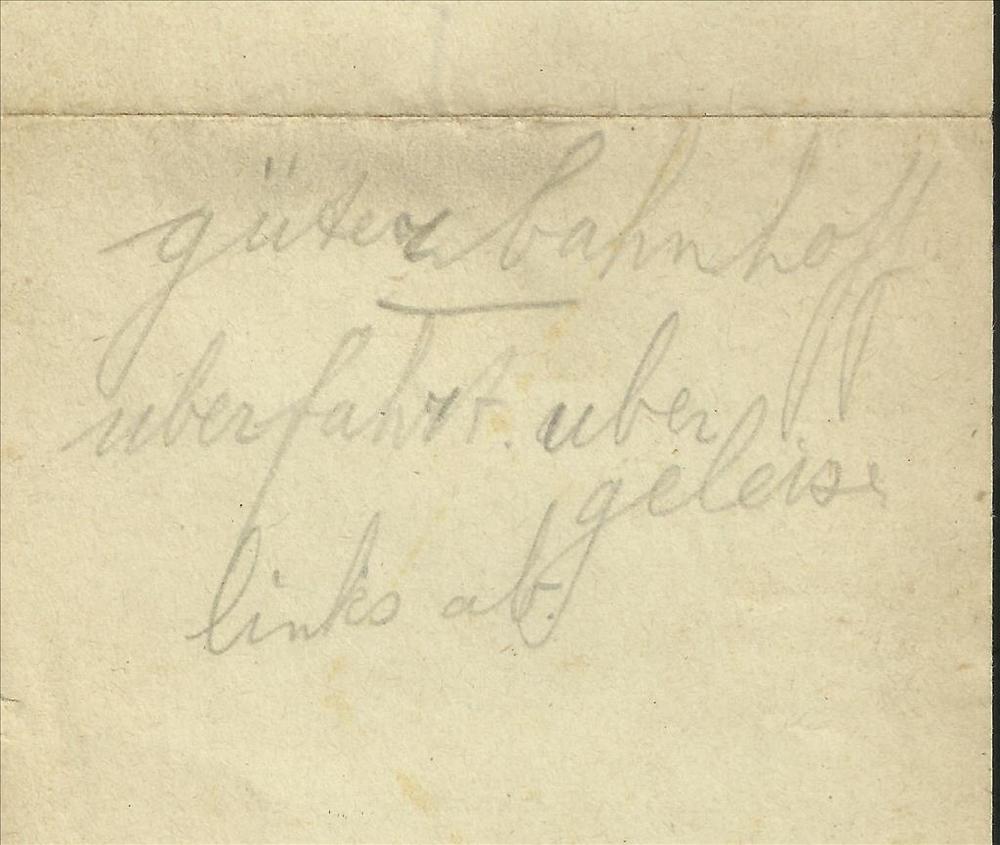 güterbahnhoff
uberfahrt. uber
geleise
links ab.